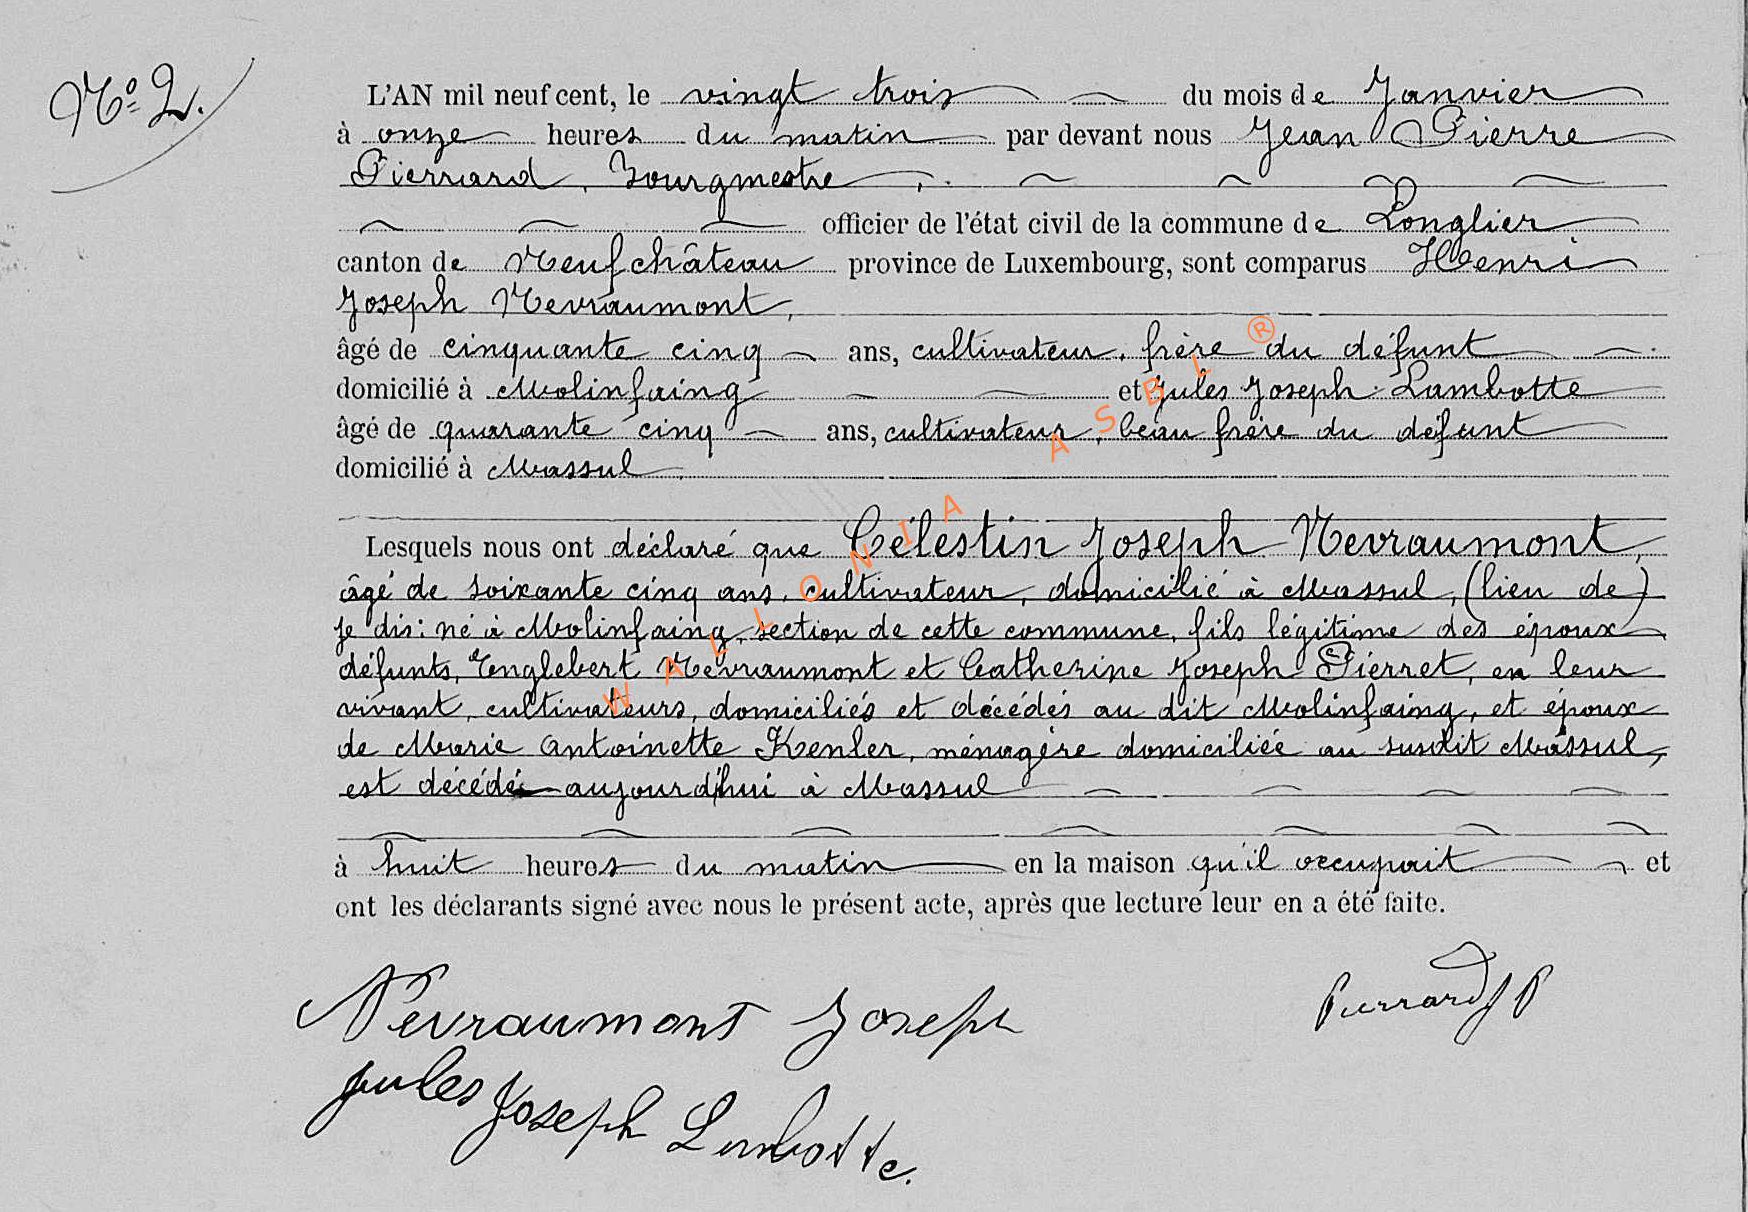 N° 2.
L'AN mil neuf cent, le vingt trois du mois de Janvier
à onze heures du matin par devant nous Jean Pierre
Pierrard, Bourgmestre,
officier de l'état civil de la commune de Longlier
canton de Neufchâteau province de Luxembourg, sont comparus Henri
Joseph Nevraumont,
âgé de cinquante cinq ans, cultivateur, frère du défunt
domicilié à Molinfaing et Jules Joseph Lambotte
âgé de quarante cinq ans, cultivateur, beau frère du défunt
domicilié à Massul
Lesquels nous ont déclaré que Célestin Joseph Nevraumont,
âgé de soixante cinq ans, cultivateur, domicilié à Massul, (lieu de)
je dis: né à Molinfaing, section de cette commune, fils légitime des époux
défunts, Englebert Nevraumont et Catherine Joseph Pierret, en leur
vivant, cultivateurs, domiciliés et décédés au dit Molinfaing, et époux
de Marie Antoinette Kenler, ménagère domiciliée au susdit Massul,
est décédé aujourd'hui à Massul
à huit heures du matin en la maison qu'il occupait et
ont les déclarants signé avec nous le présent acte, après que lecture leur en a été faite.
Nevraumont Joseph
Pierrard J P
Jules Joseph Lambotte.
WALLONIA ASBL ®